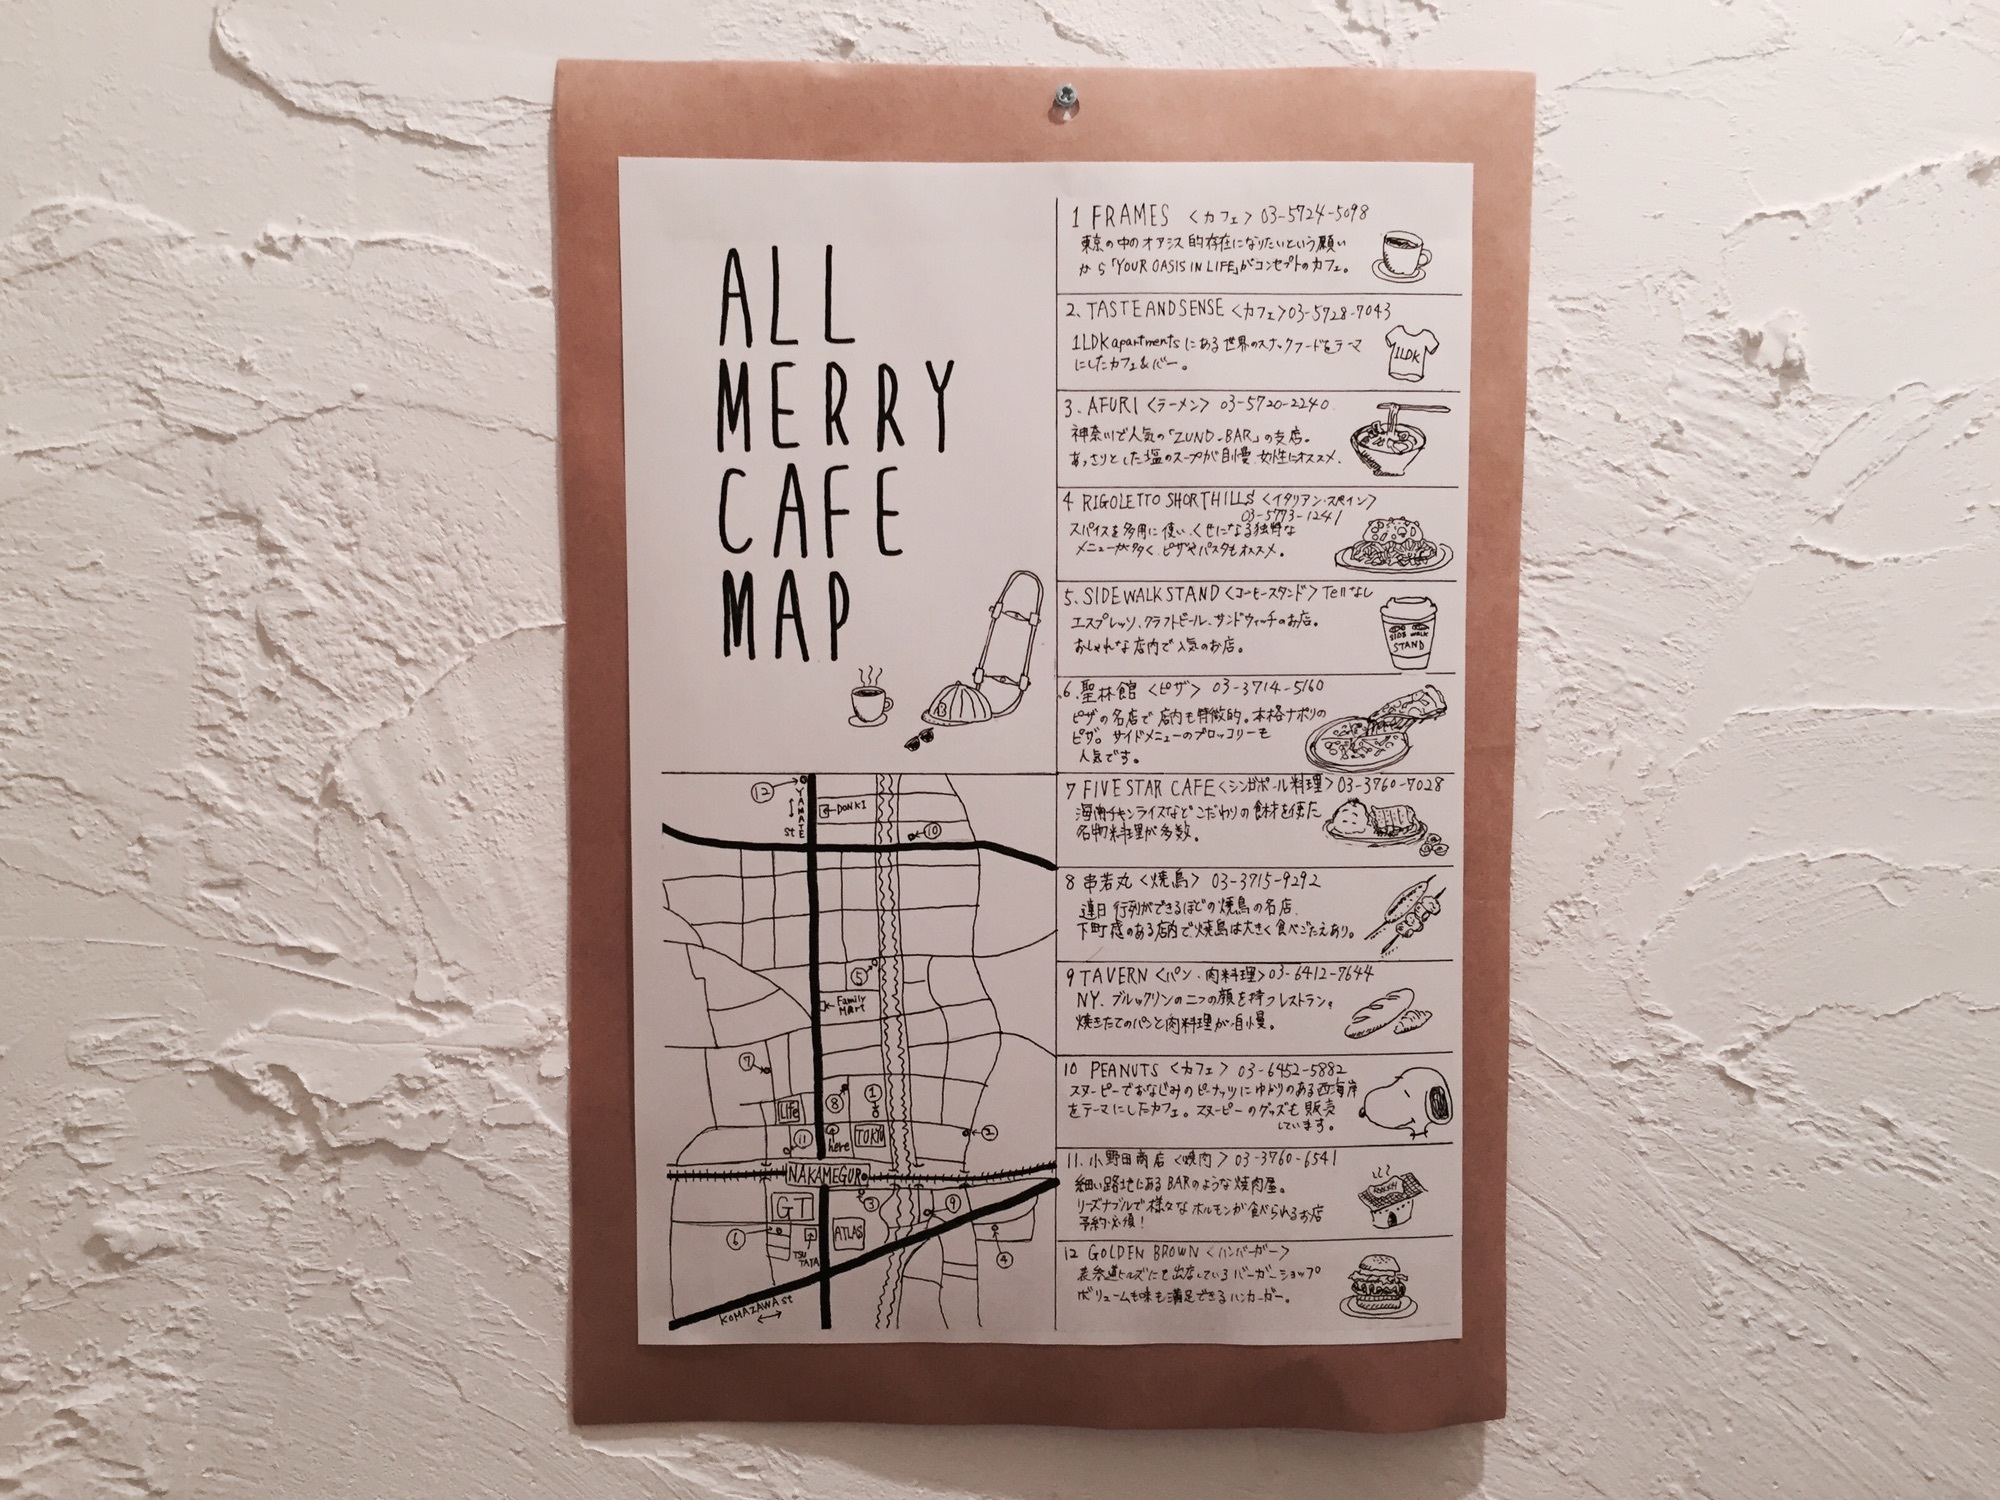 ALL
MERRY
CAFE
MAP
A3
1 FRAMES <カフェ> 03-5724-5098
東京の中のオアシス的存在になりたいという願い
から「YOUR OASIS IN LIFE」がコンセプトのカフェ。
2. TASTE AND SENSE <カフェ> 03-5728-7043
1LDK apartments にある世界のスナックフードをテーマ
にしたカフェ&バー。
1LDK
3. AFURI <ラーメン> 03-5720-2240
神奈川で人気の「ZUND-BAR」の支店。
あっさりとした塩のスープが自慢。女性にオススメ。
4 RIGOLETTO SHORT HILLS <イタリアン・スペイン>
03-5773-1241
スパイスを多用に使い、くせになる独特な
メニューが多く、ピザやパスタもオススメ。
5. SIDEWALK STAND <コーヒースタンド> Tellなし
エスプレッソ、クラフトビール、サンドウィッチのお店。
おしゃれな店内で人気のお店。
SIDE WALK
STAND
6. 聖林館 <ピザ> 03-3714-5160
ピザの名店で店内も特徴的。本格ナポリの
ピザ。サイドメニューのブロッコリーも
人気です。
7 FIVE STAR CAFE <シンガポール料理> 03-3760-7028
海南チキンライスなどこだわりの食材を使た
名物料理が多数。
8 串若丸 <焼鳥> 03-3715-9292
連日行列ができるほどの焼鳥の名店。
下町感のある店内で焼鳥は大きく食べごたえあり。
9 TAVERN <パン・肉料理> 03-6412-7644
NY、ブルックリンの二つの顔を持つレストラン。
焼きたてのパンと肉料理が自慢。
10 PEANUTS <カフェ> 03-6452-5882
スヌーピーでおなじみのピーナッツにゆかりのある西海岸
をテーマにしたカフェ。スヌーピーのグッズも販売
しています。
11. 小野田商店 <焼肉> 03-3760-6541
細い路地にあるBARのような焼肉屋。
リーズナブルで様々なホルモンが食べられるお店
予約必須!
12 GOLDEN BROWN <ハンバーガー>
表参道ヒルズにも出店しているバーガーショップ
ボリュームも味も満足できるハンバーガー。
12
YAMATE
st
DONKI
10
5
Family
Mart
7
8
1
Life
11
here
TOKYU
2
NAKAMEGURO
GT
3
9
6
TSU
TAYA
ATLAS
4
KOMAZAWA st